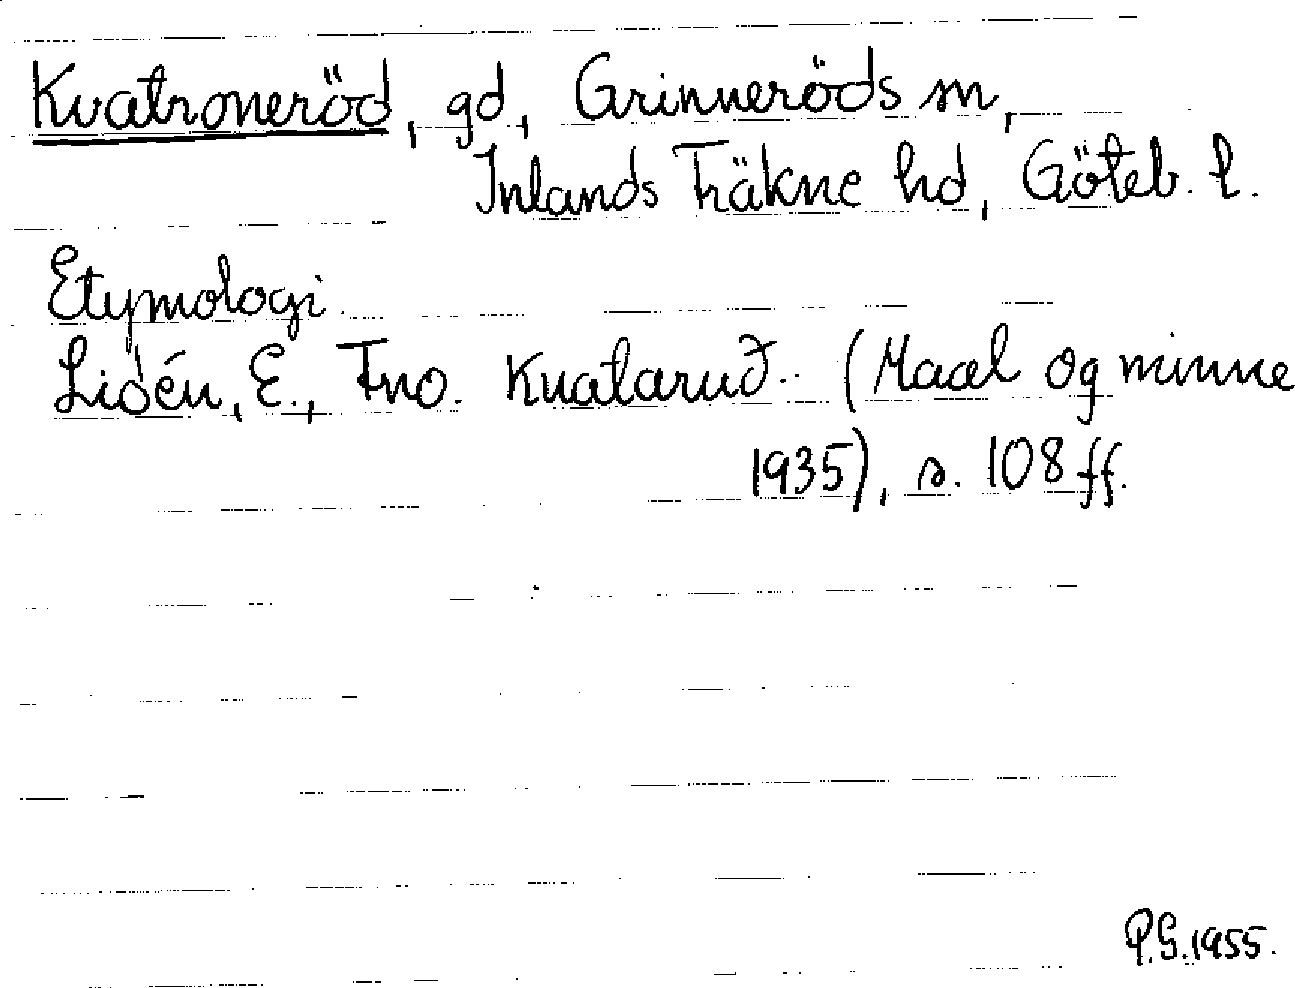 Kvatroneröd, gd, Grinneröds sn,
Inlands Fräkne hd, Göteb. l.
Etymologi
Lidén, E., Fno. Kuataruð.. (Maal og minne
1935), s. 108 ff.
P.G. 1955.